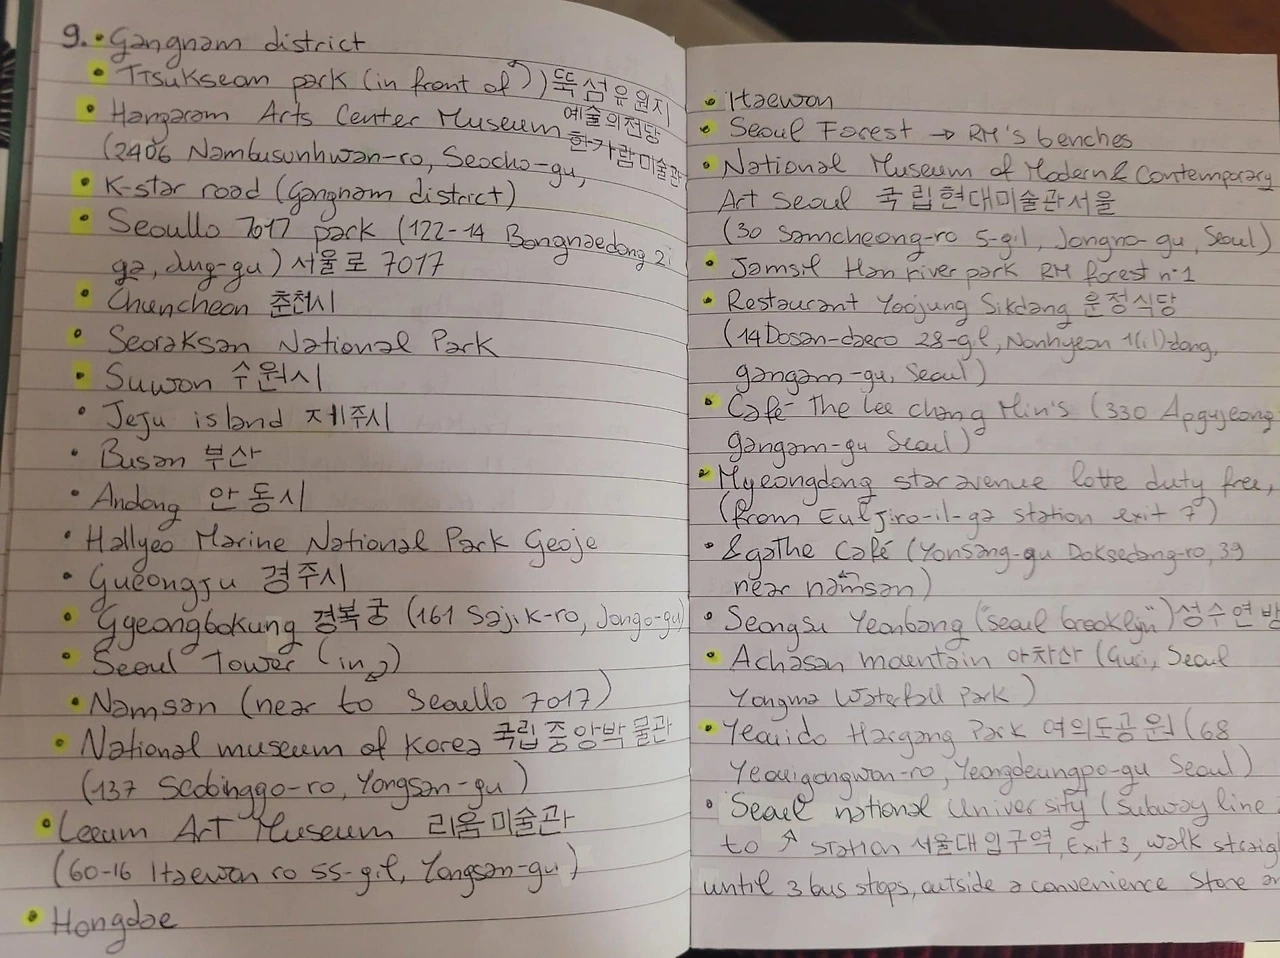 9. • Gangnam district
• TTsukseom park (in front of ) 뚝섬유원지
• Hangaram Arts Center Museum 예술의전당 한가람미술관
(2406 Nambusunhwan-ro, Seocho-gu,
• K-star road (Gangnam district)
• Seoullo 7017 park (122-14 Bongnaedong 2i
ga, Jung-gu) 서울로 7017
• Chuncheon 춘천시
• Seoraksan National Park
• Suwon 수원시
• Jeju island 제주시
• Busan 부산
• Andong 안동시
• Hallyeo Marine National Park Geoje
• Gueongju 경주시
• Gyeongbokung 경복궁 (161 Sajik-ro, Jongo-gu)
• Seoul Tower (in )
• Namsan (near to Seoullo 7017)
• National museum of Korea 국립중앙박물관
(137 Seobinggo-ro, Yongsan-gu)
• Leeum Art Museum 리움미술관
(60-16 Itaewon ro 55-gil, Yongsan-gu)
• Hongdae
• Itaewon
• Seoul Forest → RM's benches
• National Museum of Modern & Contemporary
Art Seoul 국립현대미술관서울
(30 Samcheong-ro 5-gil, Jongno-gu, Seoul)
• Jamsil Han river park RM forest n·1
• Restaurant Yoojung Sikdang 윤정식당
(14 Dosan-daero 28-gil, Nonhyeon 1(il)-dong,
gangam-gu, Seoul)
• Café- The Lee chang Min's (330 Apgujeong
gangam-gu Seoul)
• Myeongdong star avenue lotte duty free,
(from Euljiro-il-ga station exit 7)
• &gaThe Café (Yonsang-gu Doksedang-ro, 39
near namsan)
• Seongsu Yeonbang ("seoul brooklyn") 성수연방
• Achasan mountain 아차산 (Guri, Seoul
Yongma Waterfall Park)
• Yeouido Hargang Park 여의도공원 (68
Yeouigongwon-ro, Yeongdeungpo-gu Seoul)
• Seoul national University (Subway line
to ^ station 서울대입구역, Exit 3, walk straig
until 3 bus stops, outside a convenience store an